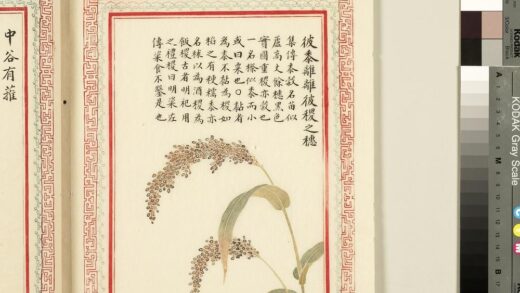 彼黍離離彼稷之穗
集傳黍穀名苗似
蘆高丈餘穗黑色
實圓重稷亦穀也
一名穄似黍而小
或曰粟也○黏者
為黍不黏為稷如
稻之有稉糯黍亦
名秫以為酒稷為
飯稷古者明祀用
之禮稷曰明粢左
傳粢食不鑿是也
中谷有蓷
Kodak
KODAK Gray Scale
A
M
B